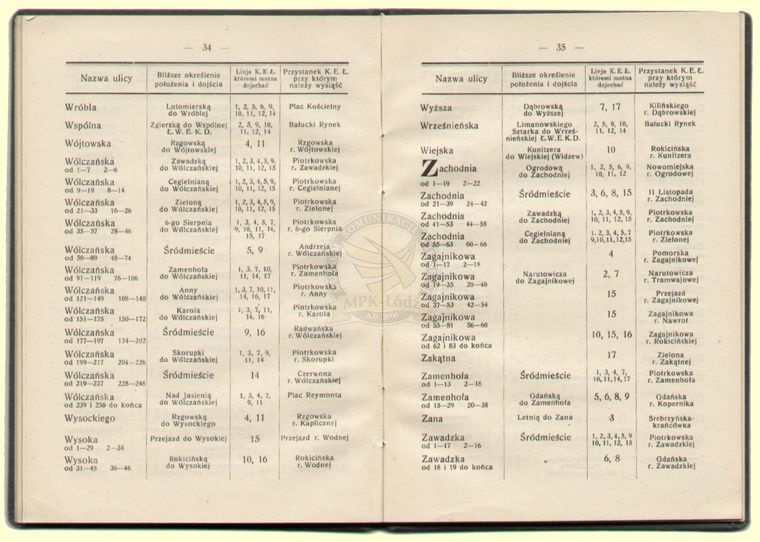 — 34 —
Nazwa ulicy | Bliższe określenie położenia i dojścia | Linje K. E. Ł. któremi można dojechać | Przystanek K. E. Ł. przy którym należy wysiąść
Wróbla | Lutomierską do Wróblej | 1, 2, 5, 6, 9, 10, 11, 12, 14 | Plac Kościelny
Wspólna | Zgierską do Wspólnej Ł.W.E.K.D. | 2, 5, 9, 10, 11, 12, 14 | Bałucki Rynek
Wójtowska | Rzgowską do Wójtowskiej | 4, 11 | Rzgowska r. Wójtowskiej
Wólczańska od 1—7 2—6 | Zawadzką do Wólczańskiej | 1, 2, 3, 4, 5, 9, 10, 11, 12, 15 | Piotrkowska r. Zawadzkiej
Wólczańska od 9—19 8—14 | Cegielnianą do Wólczańskiej | 1, 2, 3, 4, 5, 9, 10, 11, 12, 15 | Piotrkowska r. Cegielnianej
Wólczańska od 21—33 16—26 | Zieloną do Wólczańskiej | 1, 2, 3, 4, 5, 9, 10, 11, 12, 15 | Piotrkowska r. Zielonej
Wólczańska od 35—57 28—46 | 6-go Sierpnia do Wólczańskiej | 1, 3, 4, 5, 7, 9, 10, 11, 14, 15, 17 | Piotrkowska r. 6-go Sierpnia
Wólczańska od 50—89 48—74 | Śródmieście | 5, 9 | Andrzeja r. Wólczańskiej
Wólczańska od 91—119 76—106 | Zamenhofa do Wólczańskiej | 1, 3, 7, 10, 11, 14, 17 | Piotrkowska r. Zamenhofa
Wólczańska od 121—149 108—148 | Anny do Wólczańskiej | 1, 3, 7, 10, 11, 14, 16, 17 | Piotrkowska r. Anny
Wólczańska od 151—175 150—172 | Karola do Wólczańskiej | 1, 3, 7, 11, 14, 16 | Piotrkowska r. Karola
Wólczańska od 177—197 174—202 | Śródmieście | 9, 16 | Radwańska r. Wólczańskiej
Wólczańska od 199—217 204—226 | Skorupki do Wólczańskiej | 1, 3, 7, 9, 11, 14 | Piotrkowska r. Skorupki
Wólczańska od 219—237 228—248 | Śródmieście | 14 | Czerwona r. Wólczańskiej
Wólczańska od 239 i 250 do końca | Nad Jasienią do Wólczańskiej | 1, 3, 4, 7, 9, 11 | Plac Reymonta
Wysockiego | Rzgowską do Wysockiego | 4, 11 | Rzgowska r. Kaplicznej
Wysoka od 1—29 2—34 | Przejazd do Wysokiej | 15 | Przejazd r. Wodnej
Wysoka od 31—45 36—46 | Rokicińską do Wysokiej | 10, 16 | Rokicińska r. Wodnej
— 35 —
Nazwa ulicy | Bliższe określenie położenia i dojścia | Linje K. E. Ł. któremi można dojechać | Przystanek K. E. Ł. przy którym należy wysiąść
Wyższa | Dąbrowską do Wyższej | 7, 17 | Kilińskiego r. Dąbrowskiej
Wrześnieńska | Limanowskiego Sztarka do Wrześnieńskiej Ł.W.E.K.D. | 2, 5, 9, 10, 11, 12, 14 | Bałucki Rynek
Wiejska | Kunitzera do Wiejskiej (Widzew) | 10 | Rokicińska r. Kunitzera
Zachodnia od 1—19 2—22 | Ogrodową do Zachodniej | 1, 2, 5, 6, 9, 10, 11, 12 | Nowomiejska r. Ogrodowej
Zachodnia od 21—39 24—42 | Śródmieście | 3, 6, 8, 15 | 11 Listopada r. Zachodniej
Zachodnia od 41—53 44—58 | Zawadzką do Zachodniej | 1, 2, 3, 4, 5, 9, 10, 11, 12, 15 | Piotrkowska r. Zachodniej
Zachodnia od 55—63 60—66 | Cegielnianą do Zachodniej | 1, 2, 3, 4, 5, 7 9, 10, 11, 12, 15 | Piotrkowska r. Zielonej
Zagajnikowa od 1—17 2—18 | 4 | Pomorska r. Zagajnikowej
Zagajnikowa od 19—35 20—40 | Narutowicza do Zagajnikowej | 2, 7 | Narutowicza r. Tramwajowej
Zagajnikowa od 37—53 42—54 | 15 | Przejazd r. Zagajnikowej
Zagajnikowa od 55—81 56—60 | 15 | Zagajnikowa r. Nawrot
Zagajnikowa od 62 i 83 do końca | 10, 15, 16 | Zagajnikowa r. Rokicińskiej
Zakątna | 17 | Zielona r. Zakątnej
Zamenhofa od 1—13 2—18 | Śródmieście | 1, 3, 4, 7, 10, 11, 14, 17 | Piotrkowska r. Zamenhofa
Zamenhofa od 15—29 20—38 | Gdańską do Zamenhofa | 5, 6, 8, 9 | Gdańska r. Kopernika
Zana | Letnią do Zana | 3 | Srebrzyńska-krańcówka
Zawadzka od 1—17 2—16 | Śródmieście | 1, 2, 3, 4, 5, 9 10, 11, 12, 15 | Piotrkowska r. Zawadzkiej
Zawadzka od 18 i 19 do końca | 6, 8 | Gdańska r. Zawadzkiej
MPK-Łódź
A.D. 2000